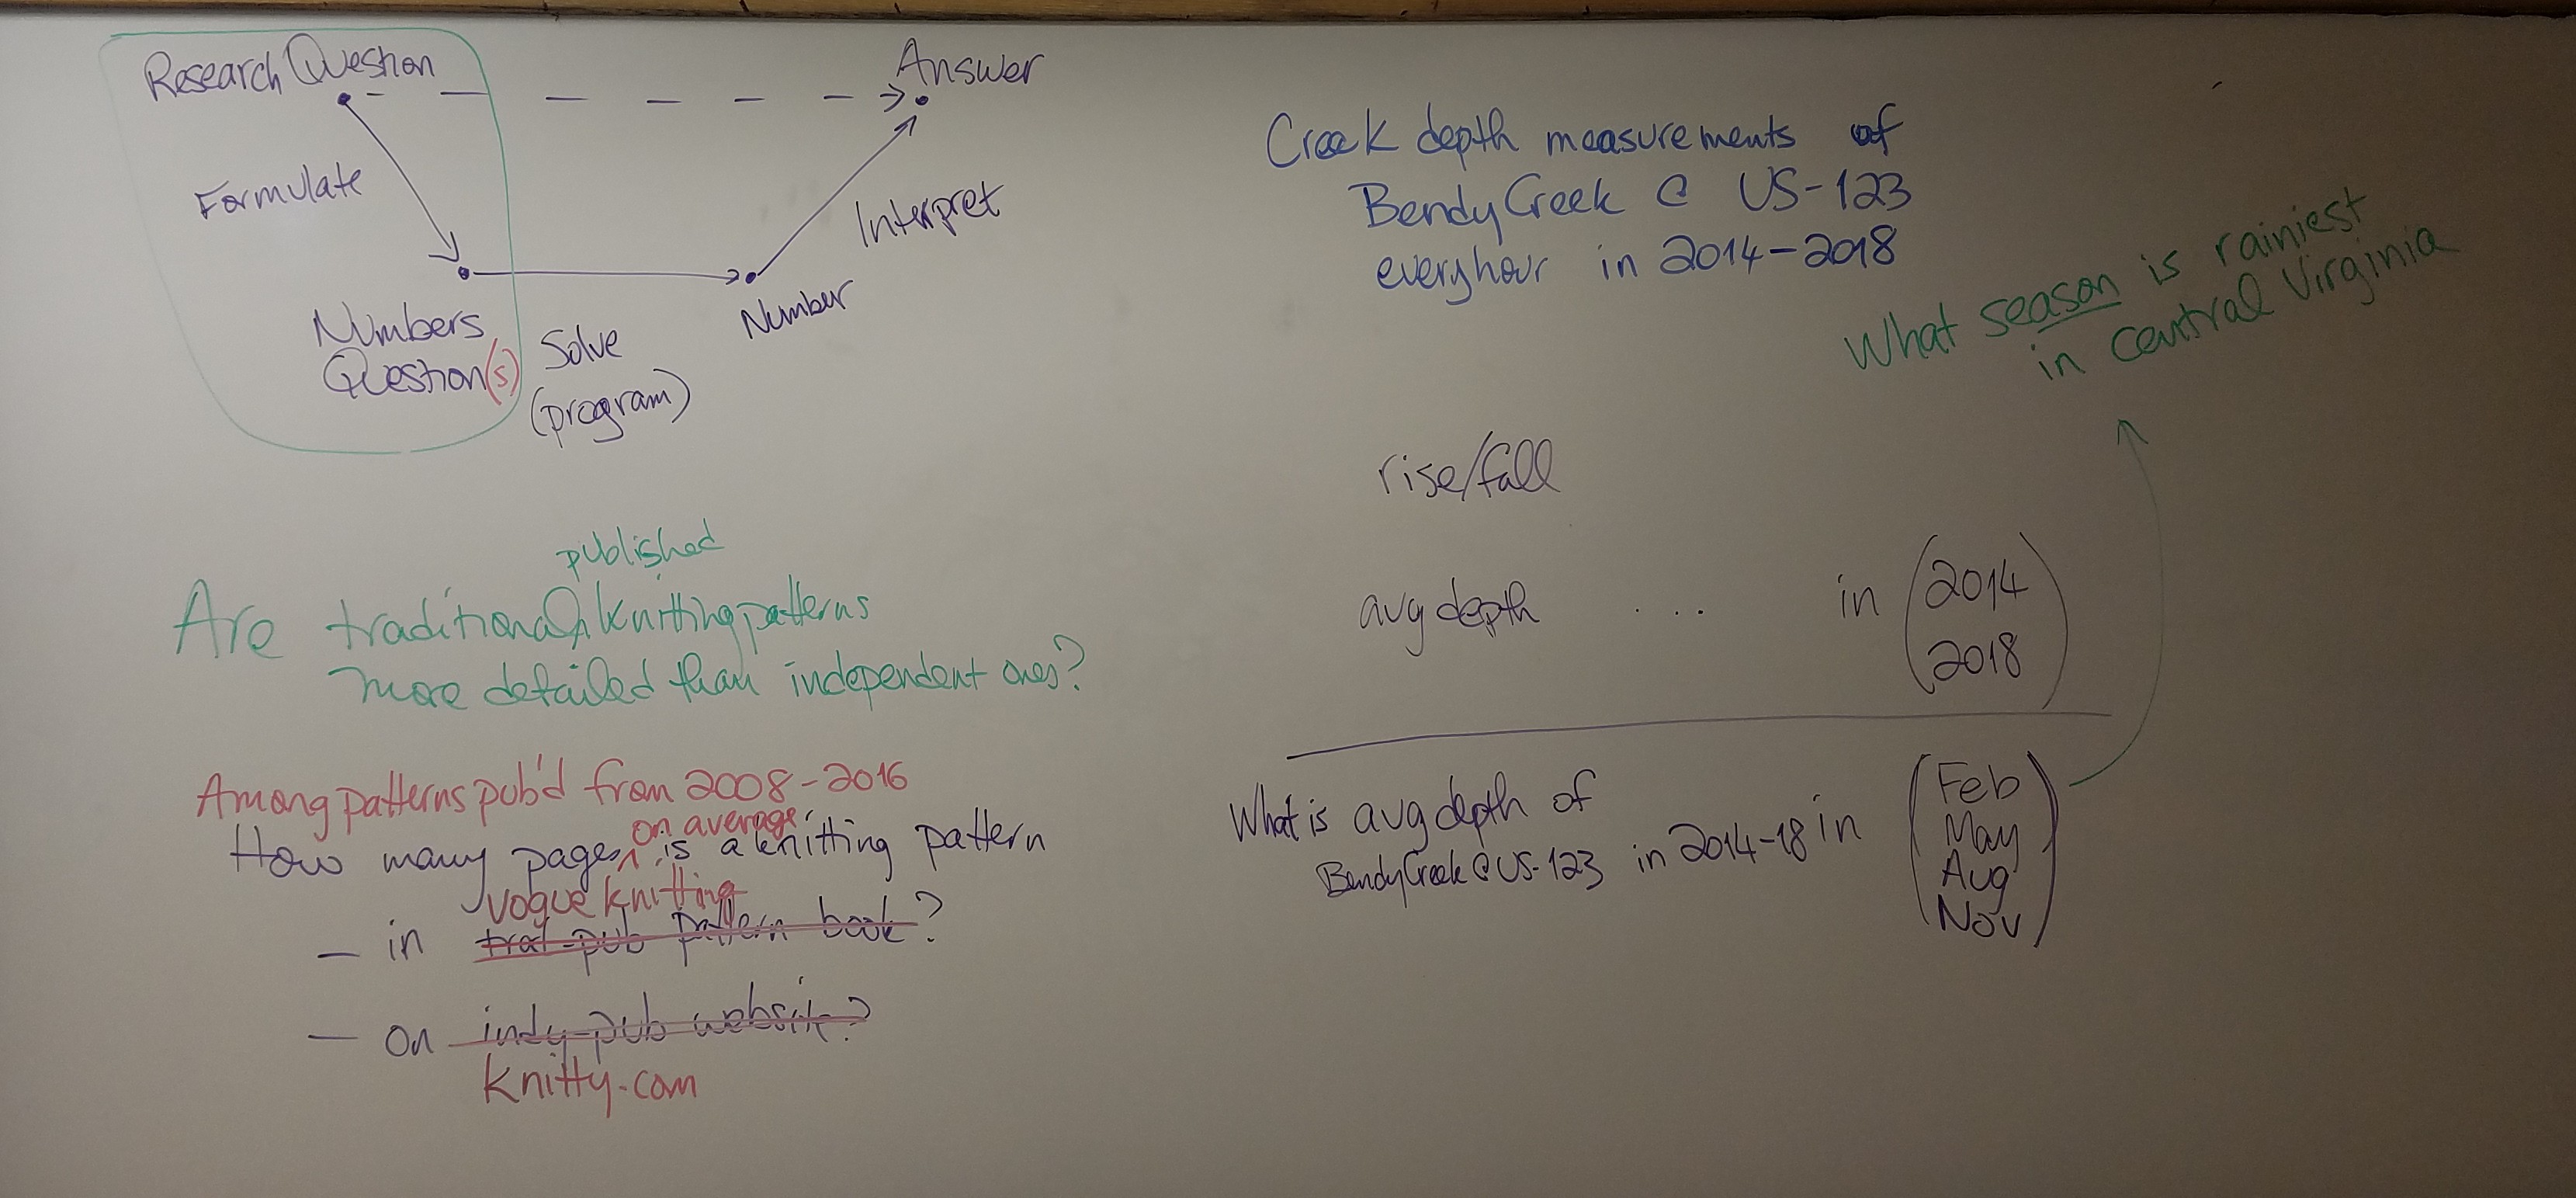 Research Question
Answer
Formulate
Interpret
Numbers
Question(s)
Solve
(program)
Number
published
Are traditional knitting patterns
more detailed than independent ones?
Among patterns pub'd from 2008-2016
on average
How many pages is a knitting pattern
vogue knitting
- in trad-pub pattern book?
- on indy-pub website?
knitty.com
Creek depth measurements of
Bendy Creek @ US-123
every hour in 2014-2018
What season is rainiest
in central Virginia
rise/fall
avg depth ... in (2014
2018)
What is avg depth of
Bendy Creek @ US-123 in 2014-18 in
(Feb
May
Aug
Nov)